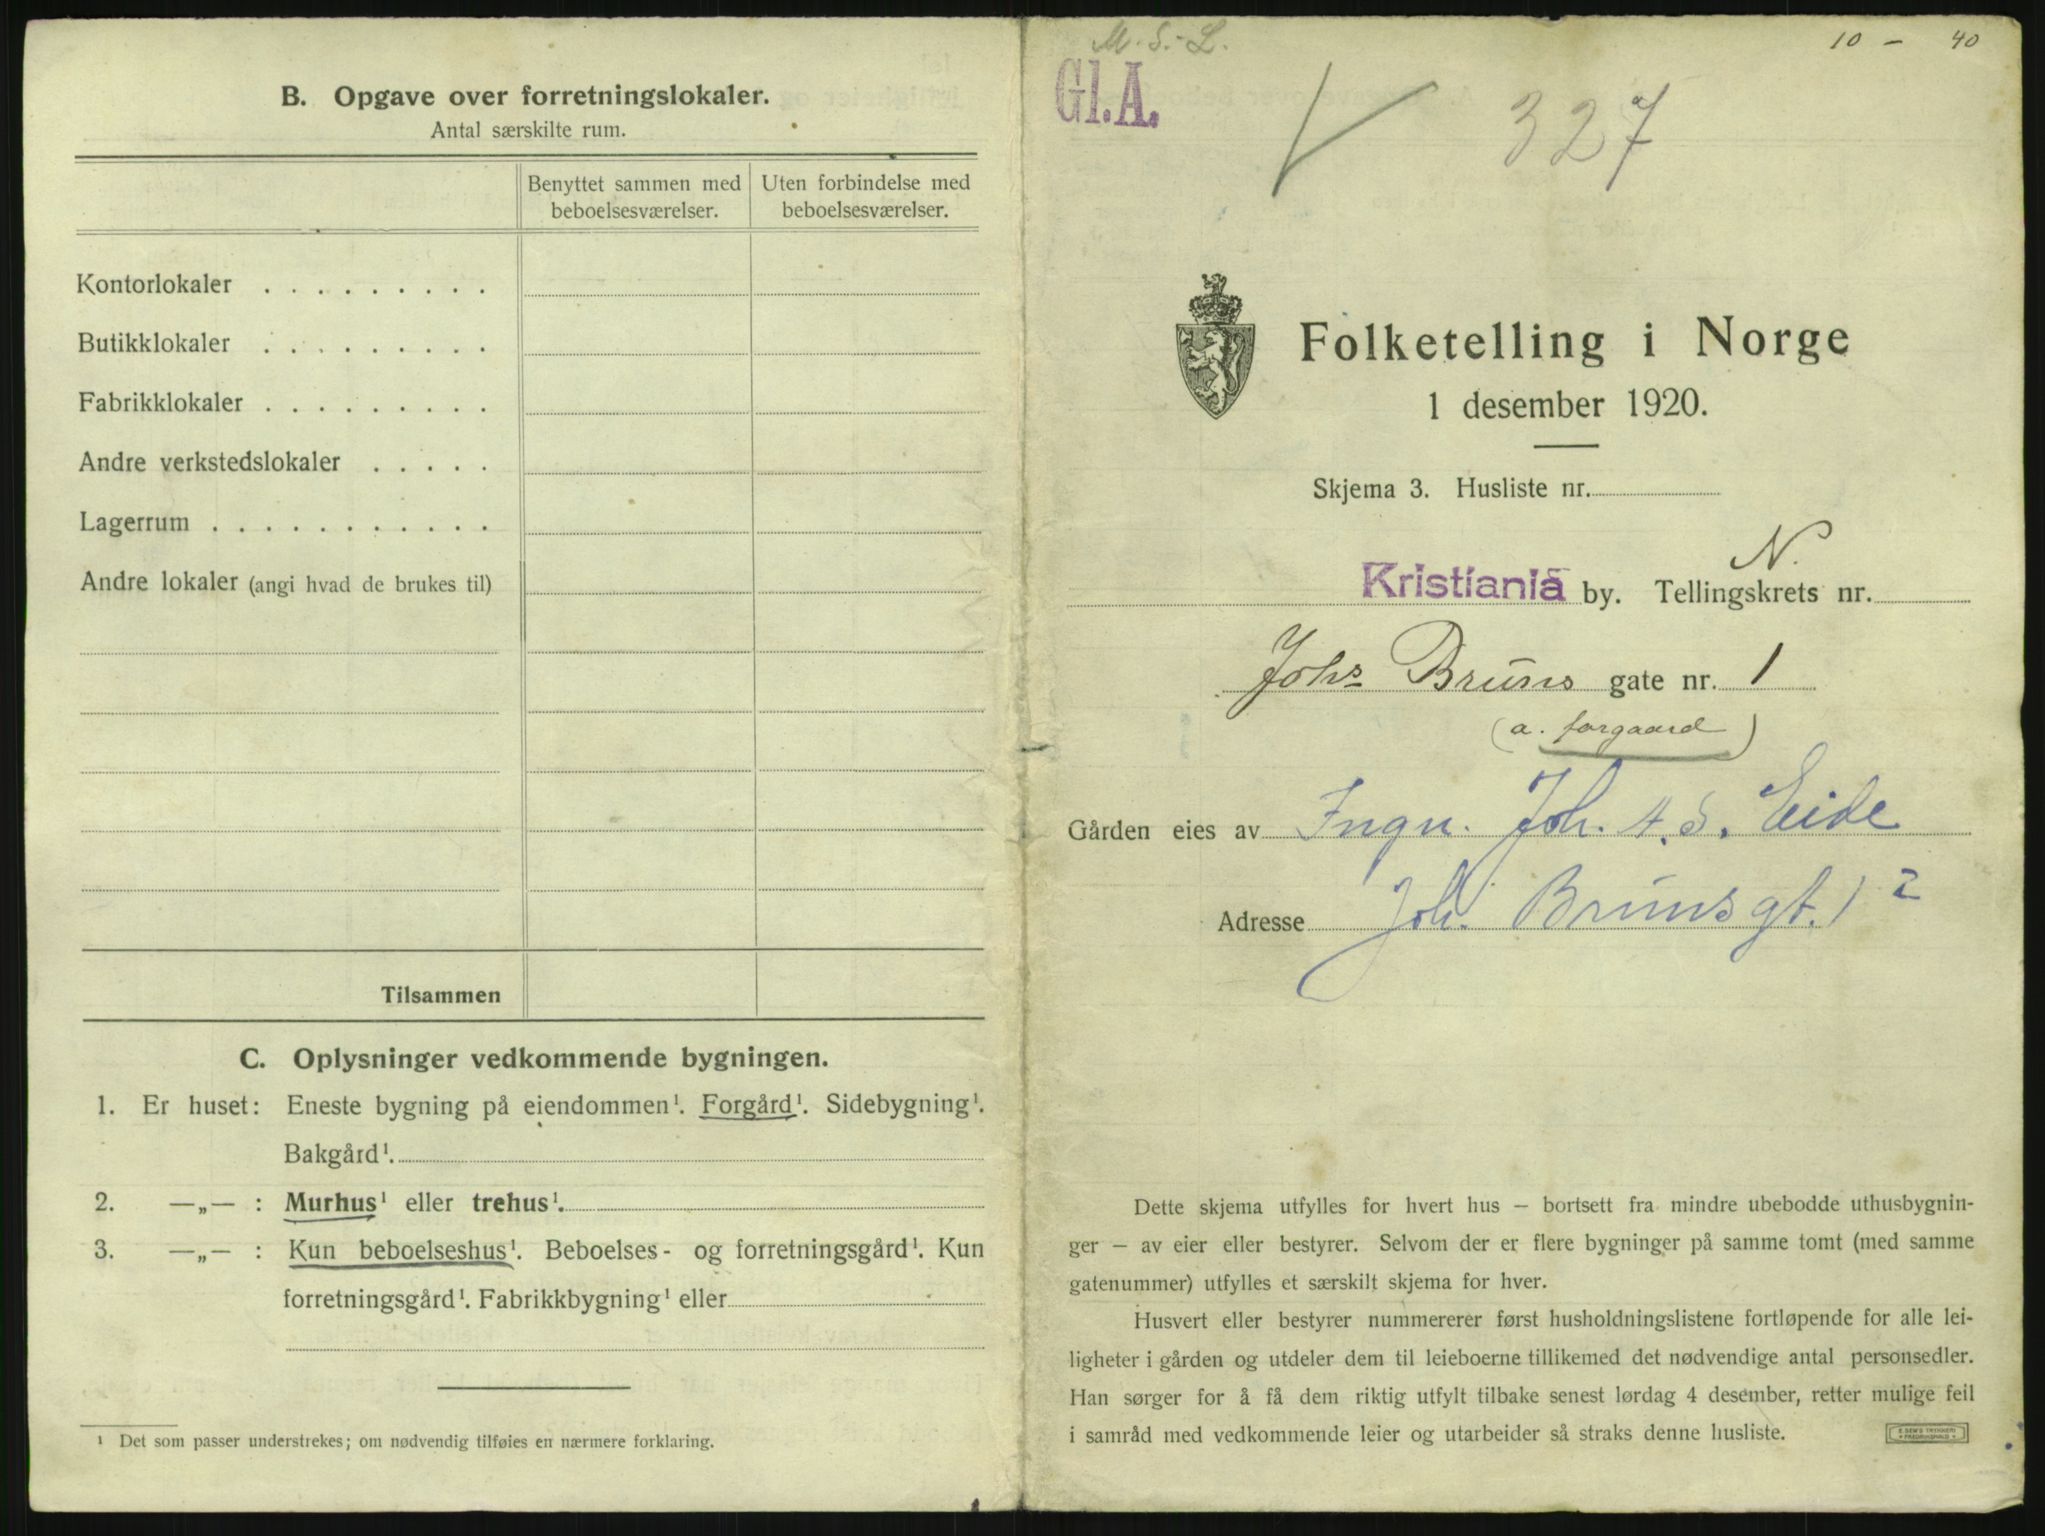 B. Opgave over forretningslokaler.
Antal særskilte rum.
Benyttet sammen med beboelsesværelser.
Uten forbindelse med beboelsesværelser.
Kontorlokaler . . . . . . . . .
Butikklokaler . . . . . . . . .
Fabrikklokaler . . . . . . . . .
Andre verkstedslokaler . . . . .
Lagerrum . . . . . . . . . . .
Andre lokaler (angi hvad de brukes til)
Tilsammen
C. Oplysninger vedkommende bygningen.
1. Er huset: Eneste bygning på eiendommen¹. Forgård¹. Sidebygning¹.
Bakgård¹.
2. —„— : Murhus¹ eller trehus¹.
3. —„— : Kun beboelseshus¹. Beboelses- og forretningsgård¹. Kun
forretningsgård¹. Fabrikkbygning¹ eller
¹ Det som passer understrekes; om nødvendig tilføies en nærmere forklaring.
M. S. L.
10 – 40
Gl.A.
327
Folketelling i Norge
1 desember 1920.
Skjema 3. Husliste nr.
N.
Kristiania by. Tellingskrets nr.
Johs Bruns gate nr. 1
(a. forgaard)
Gården eies av Ingn. Joh. A. S. Eide
Adresse Joh. Brunsgt. 1²
Dette skjema utfylles for hvert hus – bortsett fra mindre ubebodde uthusbygnin-
ger – av eier eller bestyrer. Selvom der er flere bygninger på samme tomt (med samme
gatenummer) utfylles et særskilt skjema for hver.
Husvert eller bestyrer nummererer først husholdningslistene fortløpende for alle lei-
ligheter i gården og utdeler dem til leieboerne tillikemed det nødvendige antal personsedler.
Han sørger for å få dem riktig utfylt tilbake senest lørdag 4 desember, retter mulige feil
i samråd med vedkommende leier og utarbeider så straks denne husliste.
E. SEM'S TRYKKERI
FREDRIKSHALD